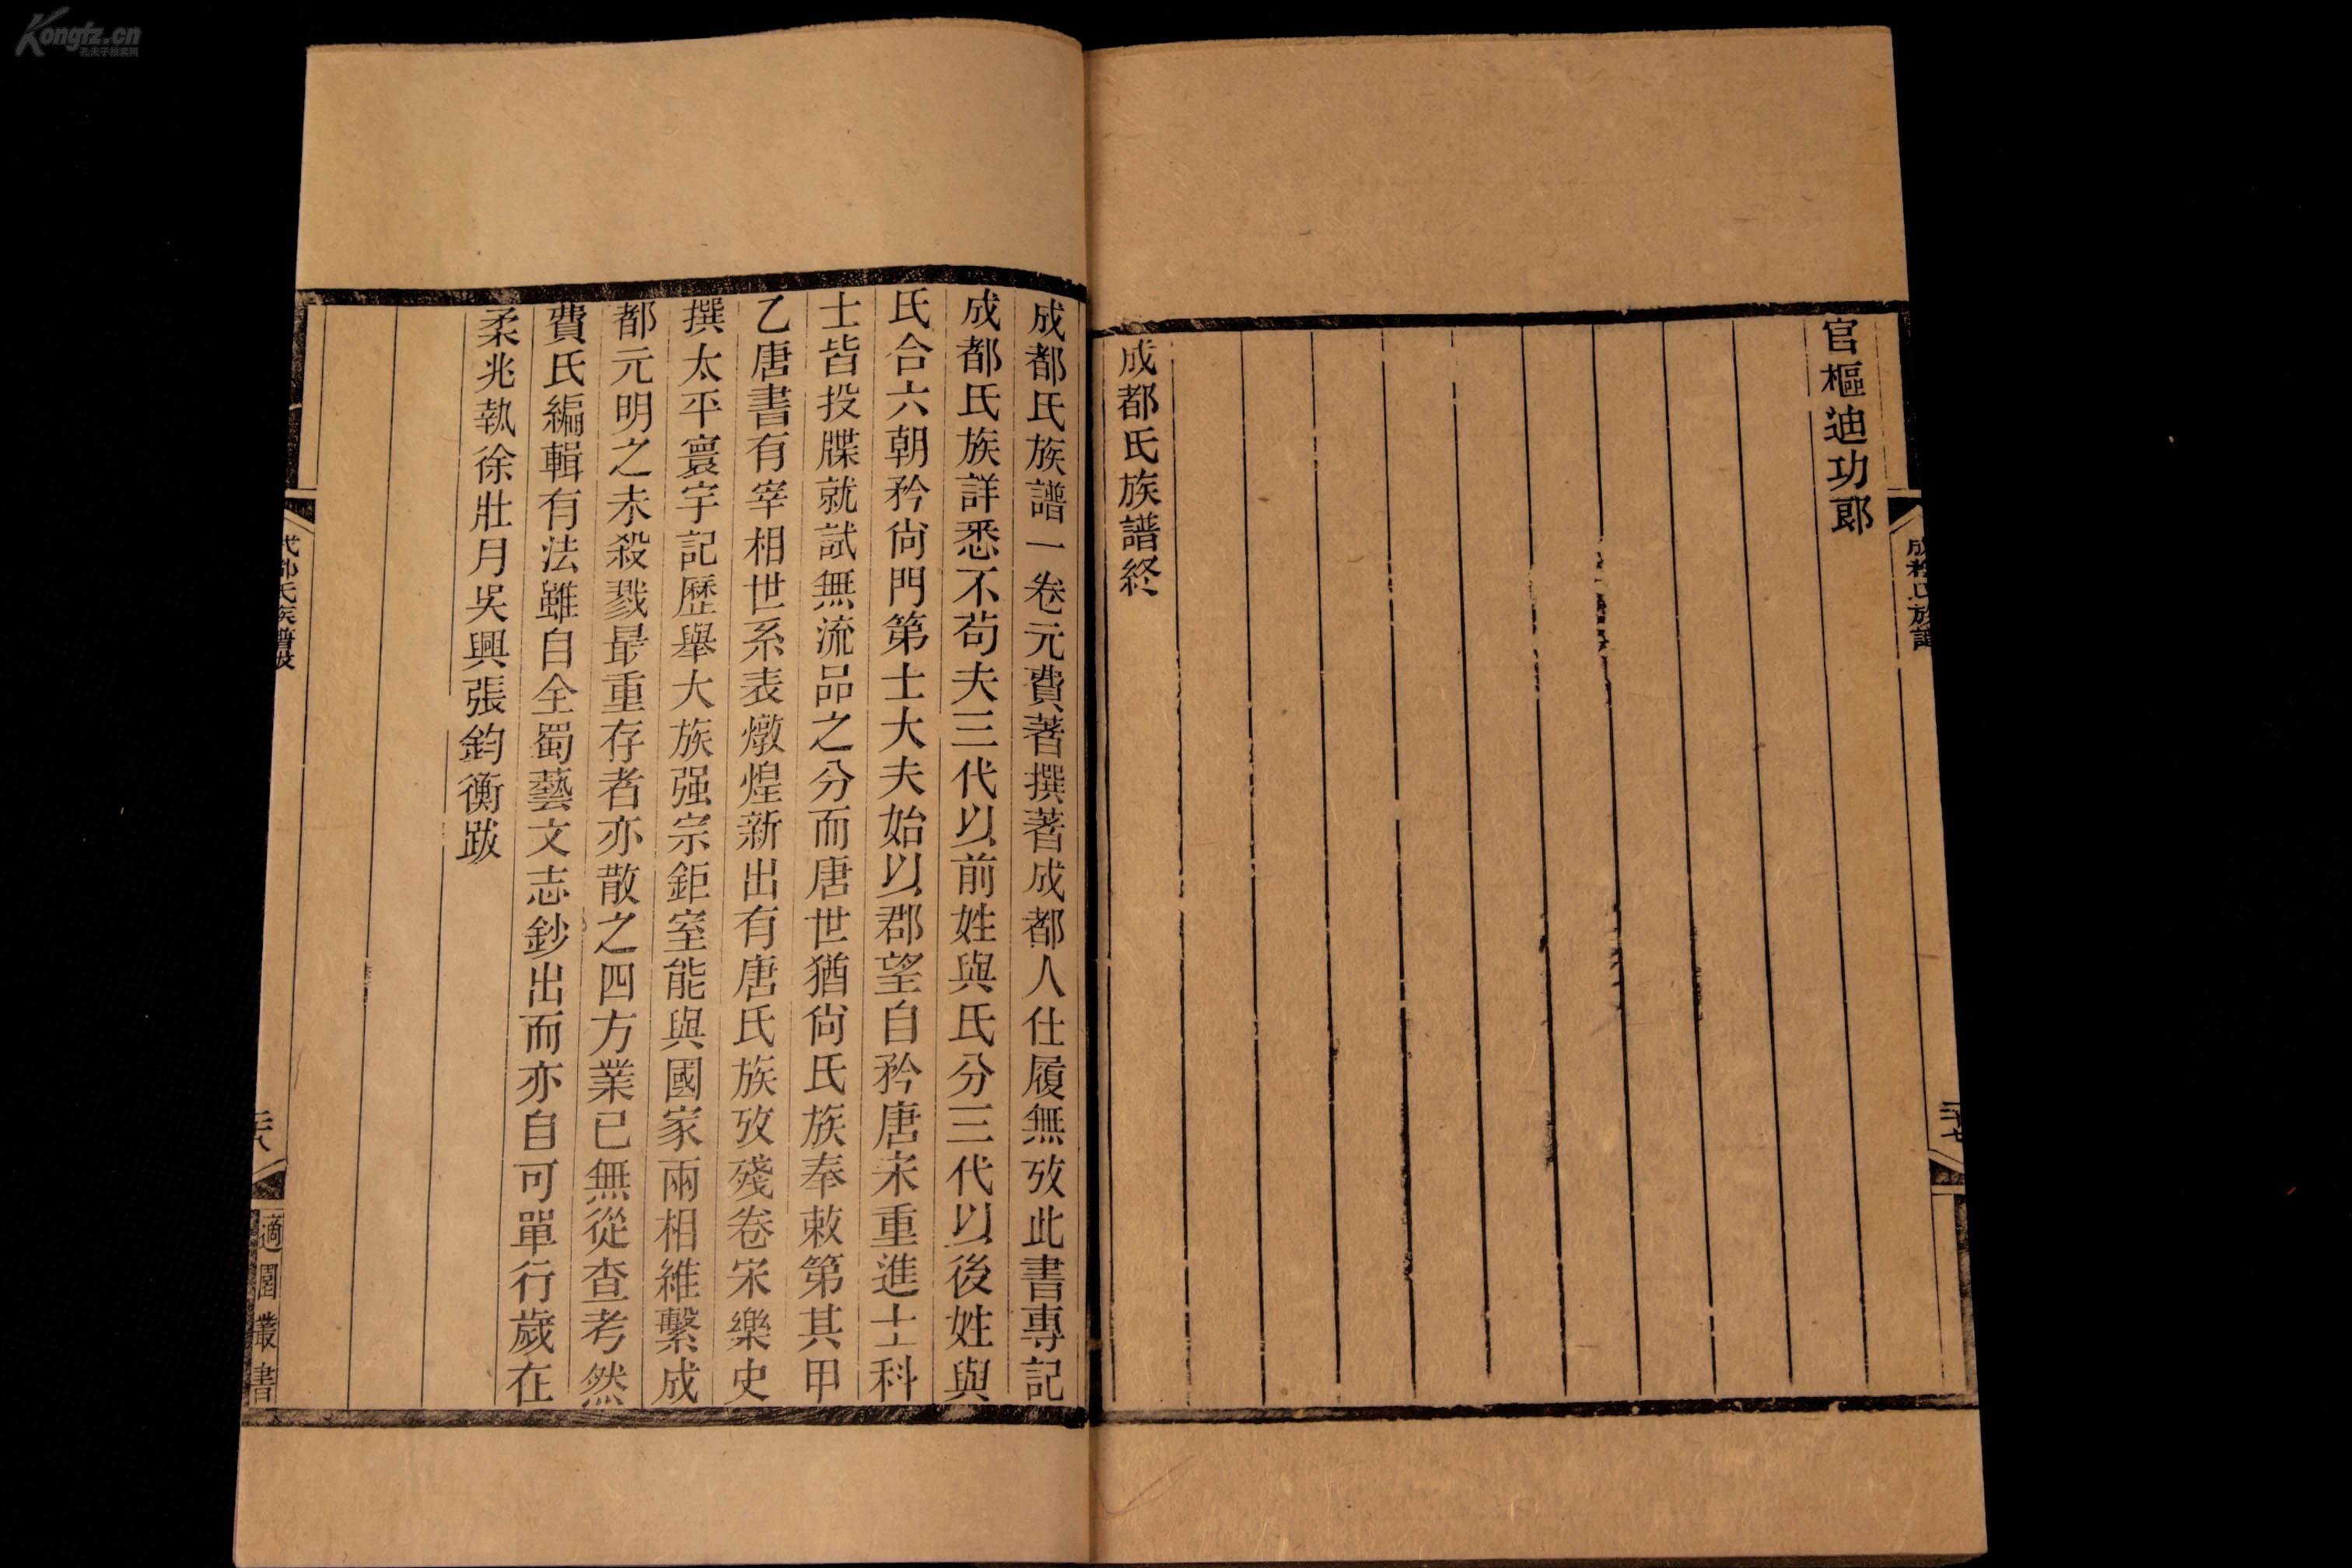 Kongfz.cn
官樞迪功郎
成都氏族譜終
成都氏族譜
二十七
成都氏族譜一卷元費著撰著成都人仕履無攷此書專記
成都氏族詳悉不苟夫三代以前姓與氏分三代以後姓與
氏合六朝矜尙門第士大夫始以郡望自矜唐宋重進士科
士皆投牒就試無流品之分而唐世猶尙氏族奉敕第其甲
乙唐書有宰相世系表燉煌新出有唐氏族攷殘卷宋樂史
撰太平寰宇記歷舉大族强宗鉅室能與國家兩相維繫成
都元明之未殺戮最重存者亦散之四方業已無從查考然
費氏編輯有法雖自全蜀藝文志鈔出而亦自可單行歲在
柔兆執徐壯月吳興張鈞衡跋
成都氏族譜跋
二十八
適園叢書